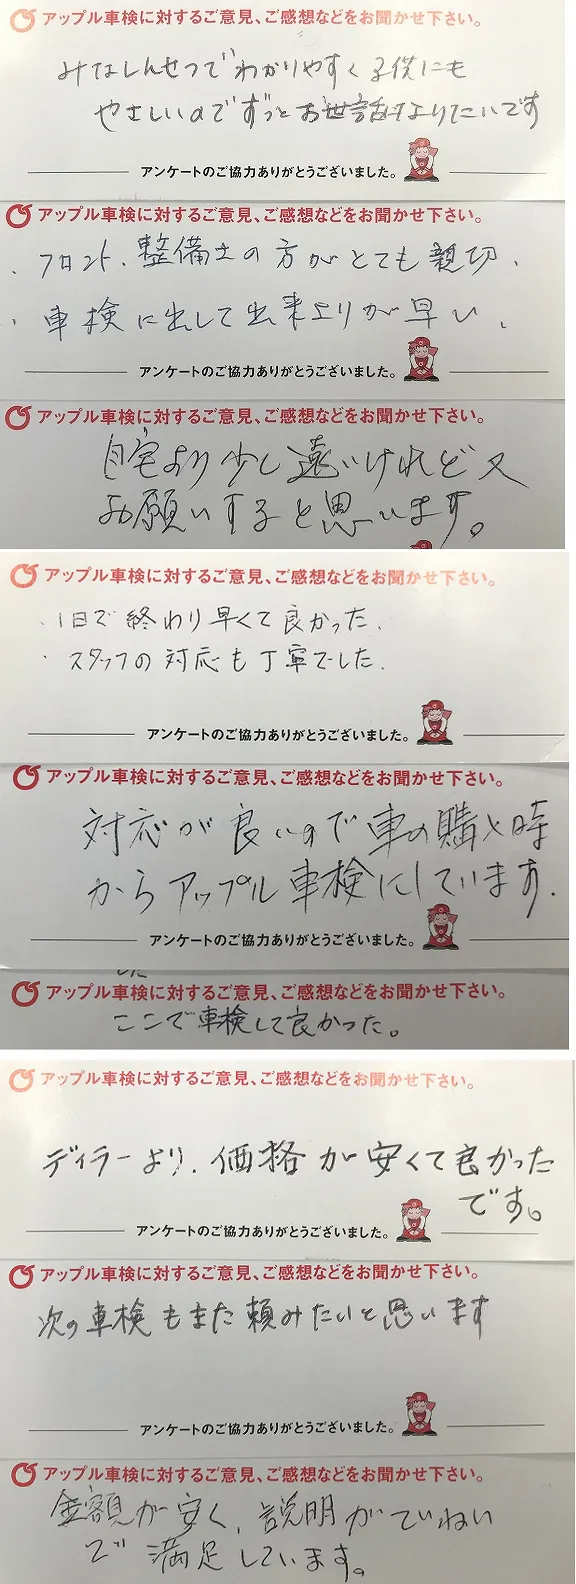 アップル車検に対するご意見、ご感想などをお聞かせ下さい。
みなしんせつでわかりやすく子供にも
やさしいのでずっとお世話になりたいです
アンケートのご協力ありがとうございました。
アップル車検に対するご意見、ご感想などをお聞かせ下さい。
・フロント、整備士の方がとても親切、
・車検に出して出来上りが早い、
アンケートのご協力ありがとうございました。
アップル車検に対するご意見、ご感想などをお聞かせ下さい。
自宅より少し遠いけれど又
お願いすると思います。
アップル車検に対するご意見、ご感想などをお聞かせ下さい。
・1日で終わり早くて良かった.
・スタッフの対応も丁寧でした.
アンケートのご協力ありがとうございました。
アップル車検に対するご意見、ご感想などをお聞かせ下さい。
対応が良いので車の購入時
からアップル車検にしています.
アンケートのご協力ありがとうございました。
アップル車検に対するご意見、ご感想などをお聞かせ下さい。
ここで車検して良かった。
アップル車検に対するご意見、ご感想などをお聞かせ下さい。
ディラーより、価格が安くて良かった
です。
アンケートのご協力ありがとうございました。
アップル車検に対するご意見、ご感想などをお聞かせ下さい。
次の車検もまた頼みたいと思います
アンケートのご協力ありがとうございました。
アップル車検に対するご意見、ご感想などをお聞かせ下さい。
金額が安く、説明がていねい
で満足しています。